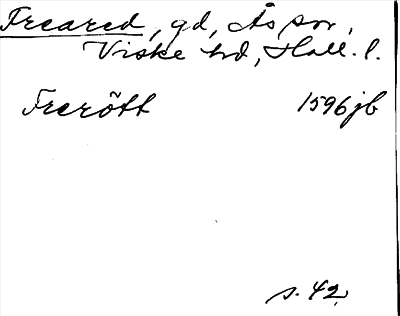 Freared, gd, Ås sn,
Viske hd, Hall. l.
Frerött 1596 jb
s. 42